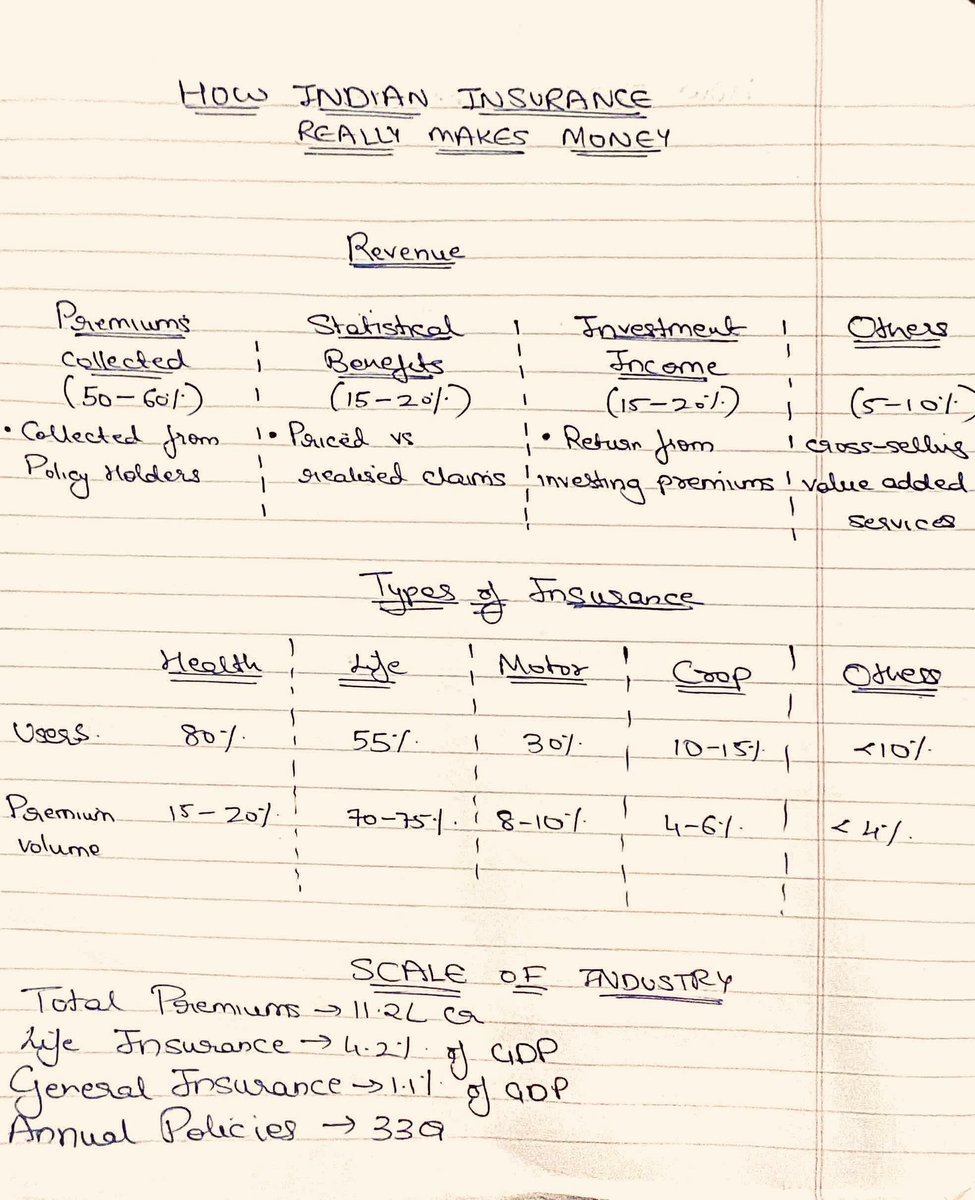 HOW INDIAN INSURANCE
REALLY MAKES MONEY
Revenue
Premiums Collected (50-60%)
• Collected from Policy Holders
Statistical Benefits (15-20%)
• Priced vs realised claims
Investment Income (15-20%)
• Return from investing premiums
Others (5-10%)
cross-selling value added services
Types of Insurance
Health Life Motor Crop Others
Users 80% 55% 30% 10-15% <10%
Premium volume 15-20% 70-75% 8-10% 4-6% <4%
SCALE OF INDUSTRY
Total Premiums → 11.2L Cr
Life Insurance → 4.2% of GDP
General Insurance → 1.1% of GDP
Annual Policies → 33Cr